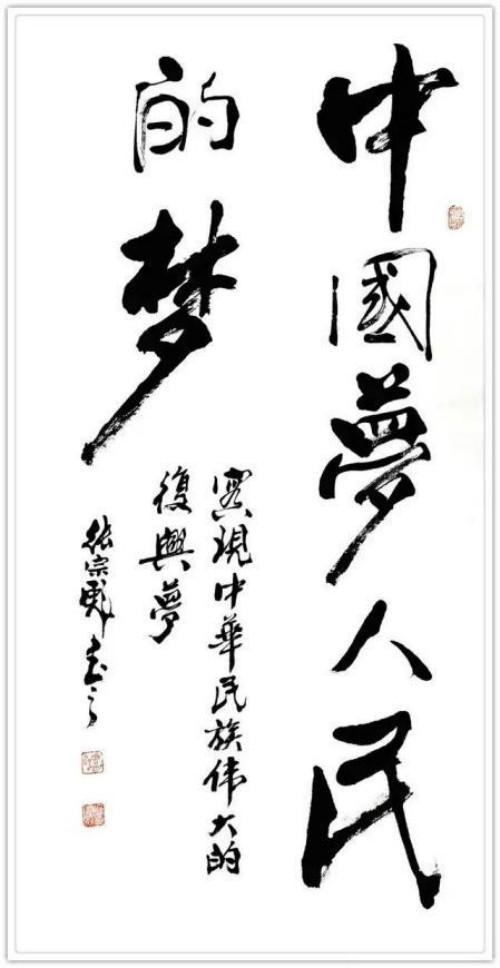 中國夢人民
的梦
實現中華民族伟大的
復興夢
张宗彪书